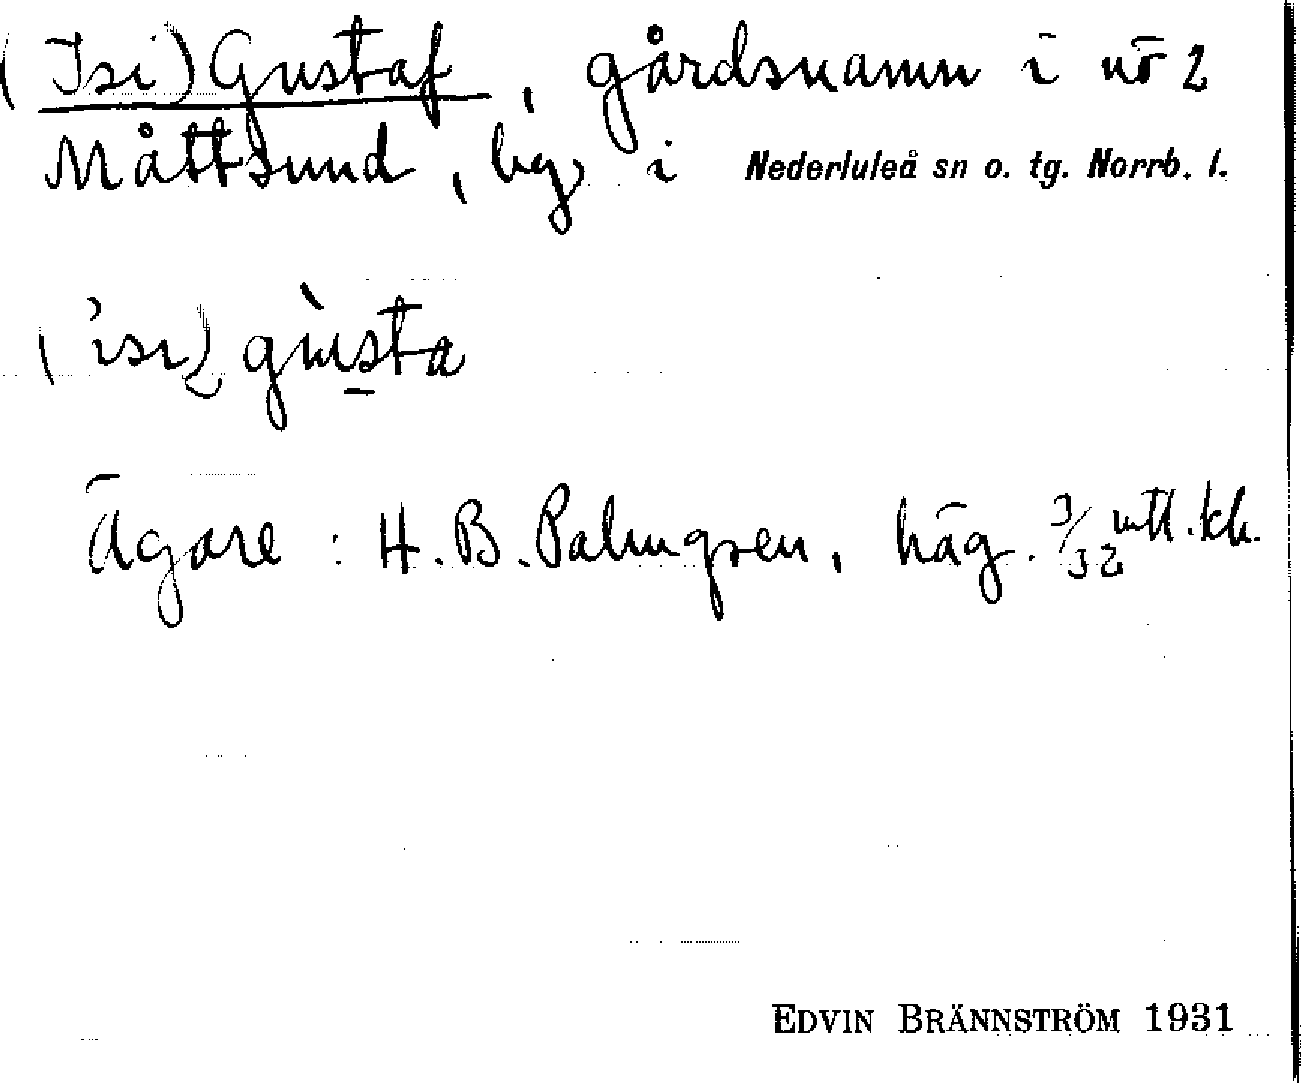 (Isi) Gustaf, gårdsnamn i nö 2
Måttsund, by, i Nederluleå sn o. tg. Norrb. l.
(isi) gùsta
Ägare: H. B. Palmgren, häg. 3/32 mtl. kh.
EDVIN BRÄNNSTRÖM 1931